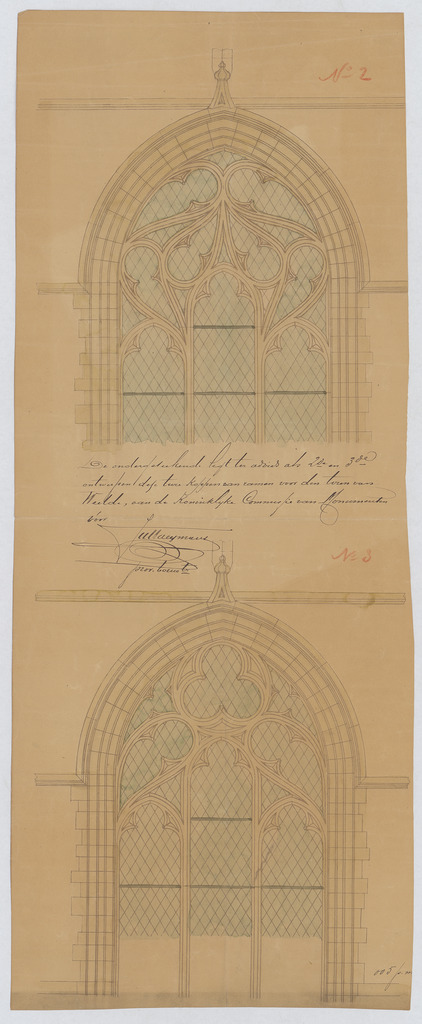 No 2
De ondergeteekende legt ter advies als 2de en 3de
ontwerpen deze twee koppen van ramen voor den toren van
Weelde, aan de Koninklyke Commissie van Monumenten
voor
J Taeymans
prov. bouwm
No 3